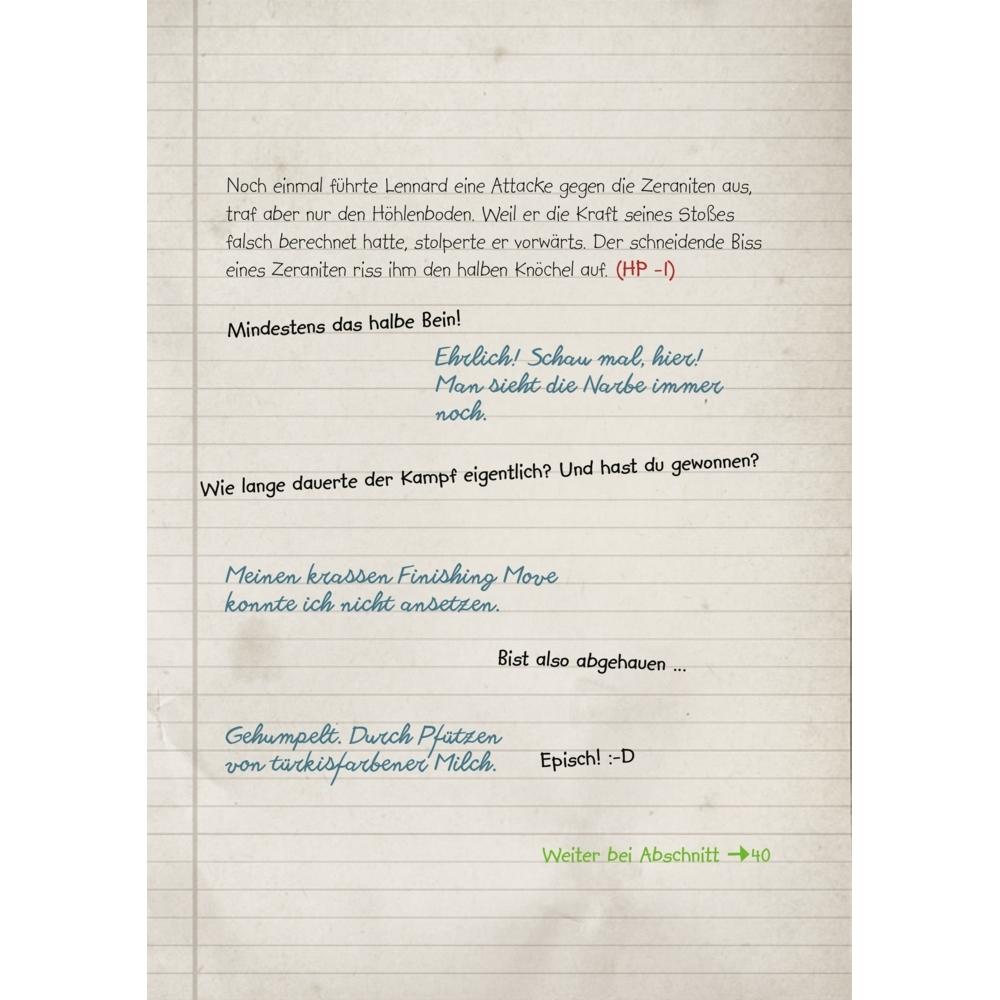 Noch einmal führte Lennard eine Attacke gegen die Zeraniten aus,
traf aber nur den Höhlenboden. Weil er die Kraft seines Stoßes
falsch berechnet hatte, stolperte er vorwärts. Der schneidende Biss
eines Zeraniten riss ihm den halben Knöchel auf. (HP -1)
Mindestens das halbe Bein!
Ehrlich! Schau mal, hier!
Man sieht die Narbe immer
noch.
Wie lange dauerte der Kampf eigentlich? Und hast du gewonnen?
Meinen krassen Finishing Move
konnte ich nicht ansetzen.
Bist also abgehauen ...
Gehumpelt. Durch Pfützen
von türkisfarbener Milch.
Episch! :-D
Weiter bei Abschnitt →40